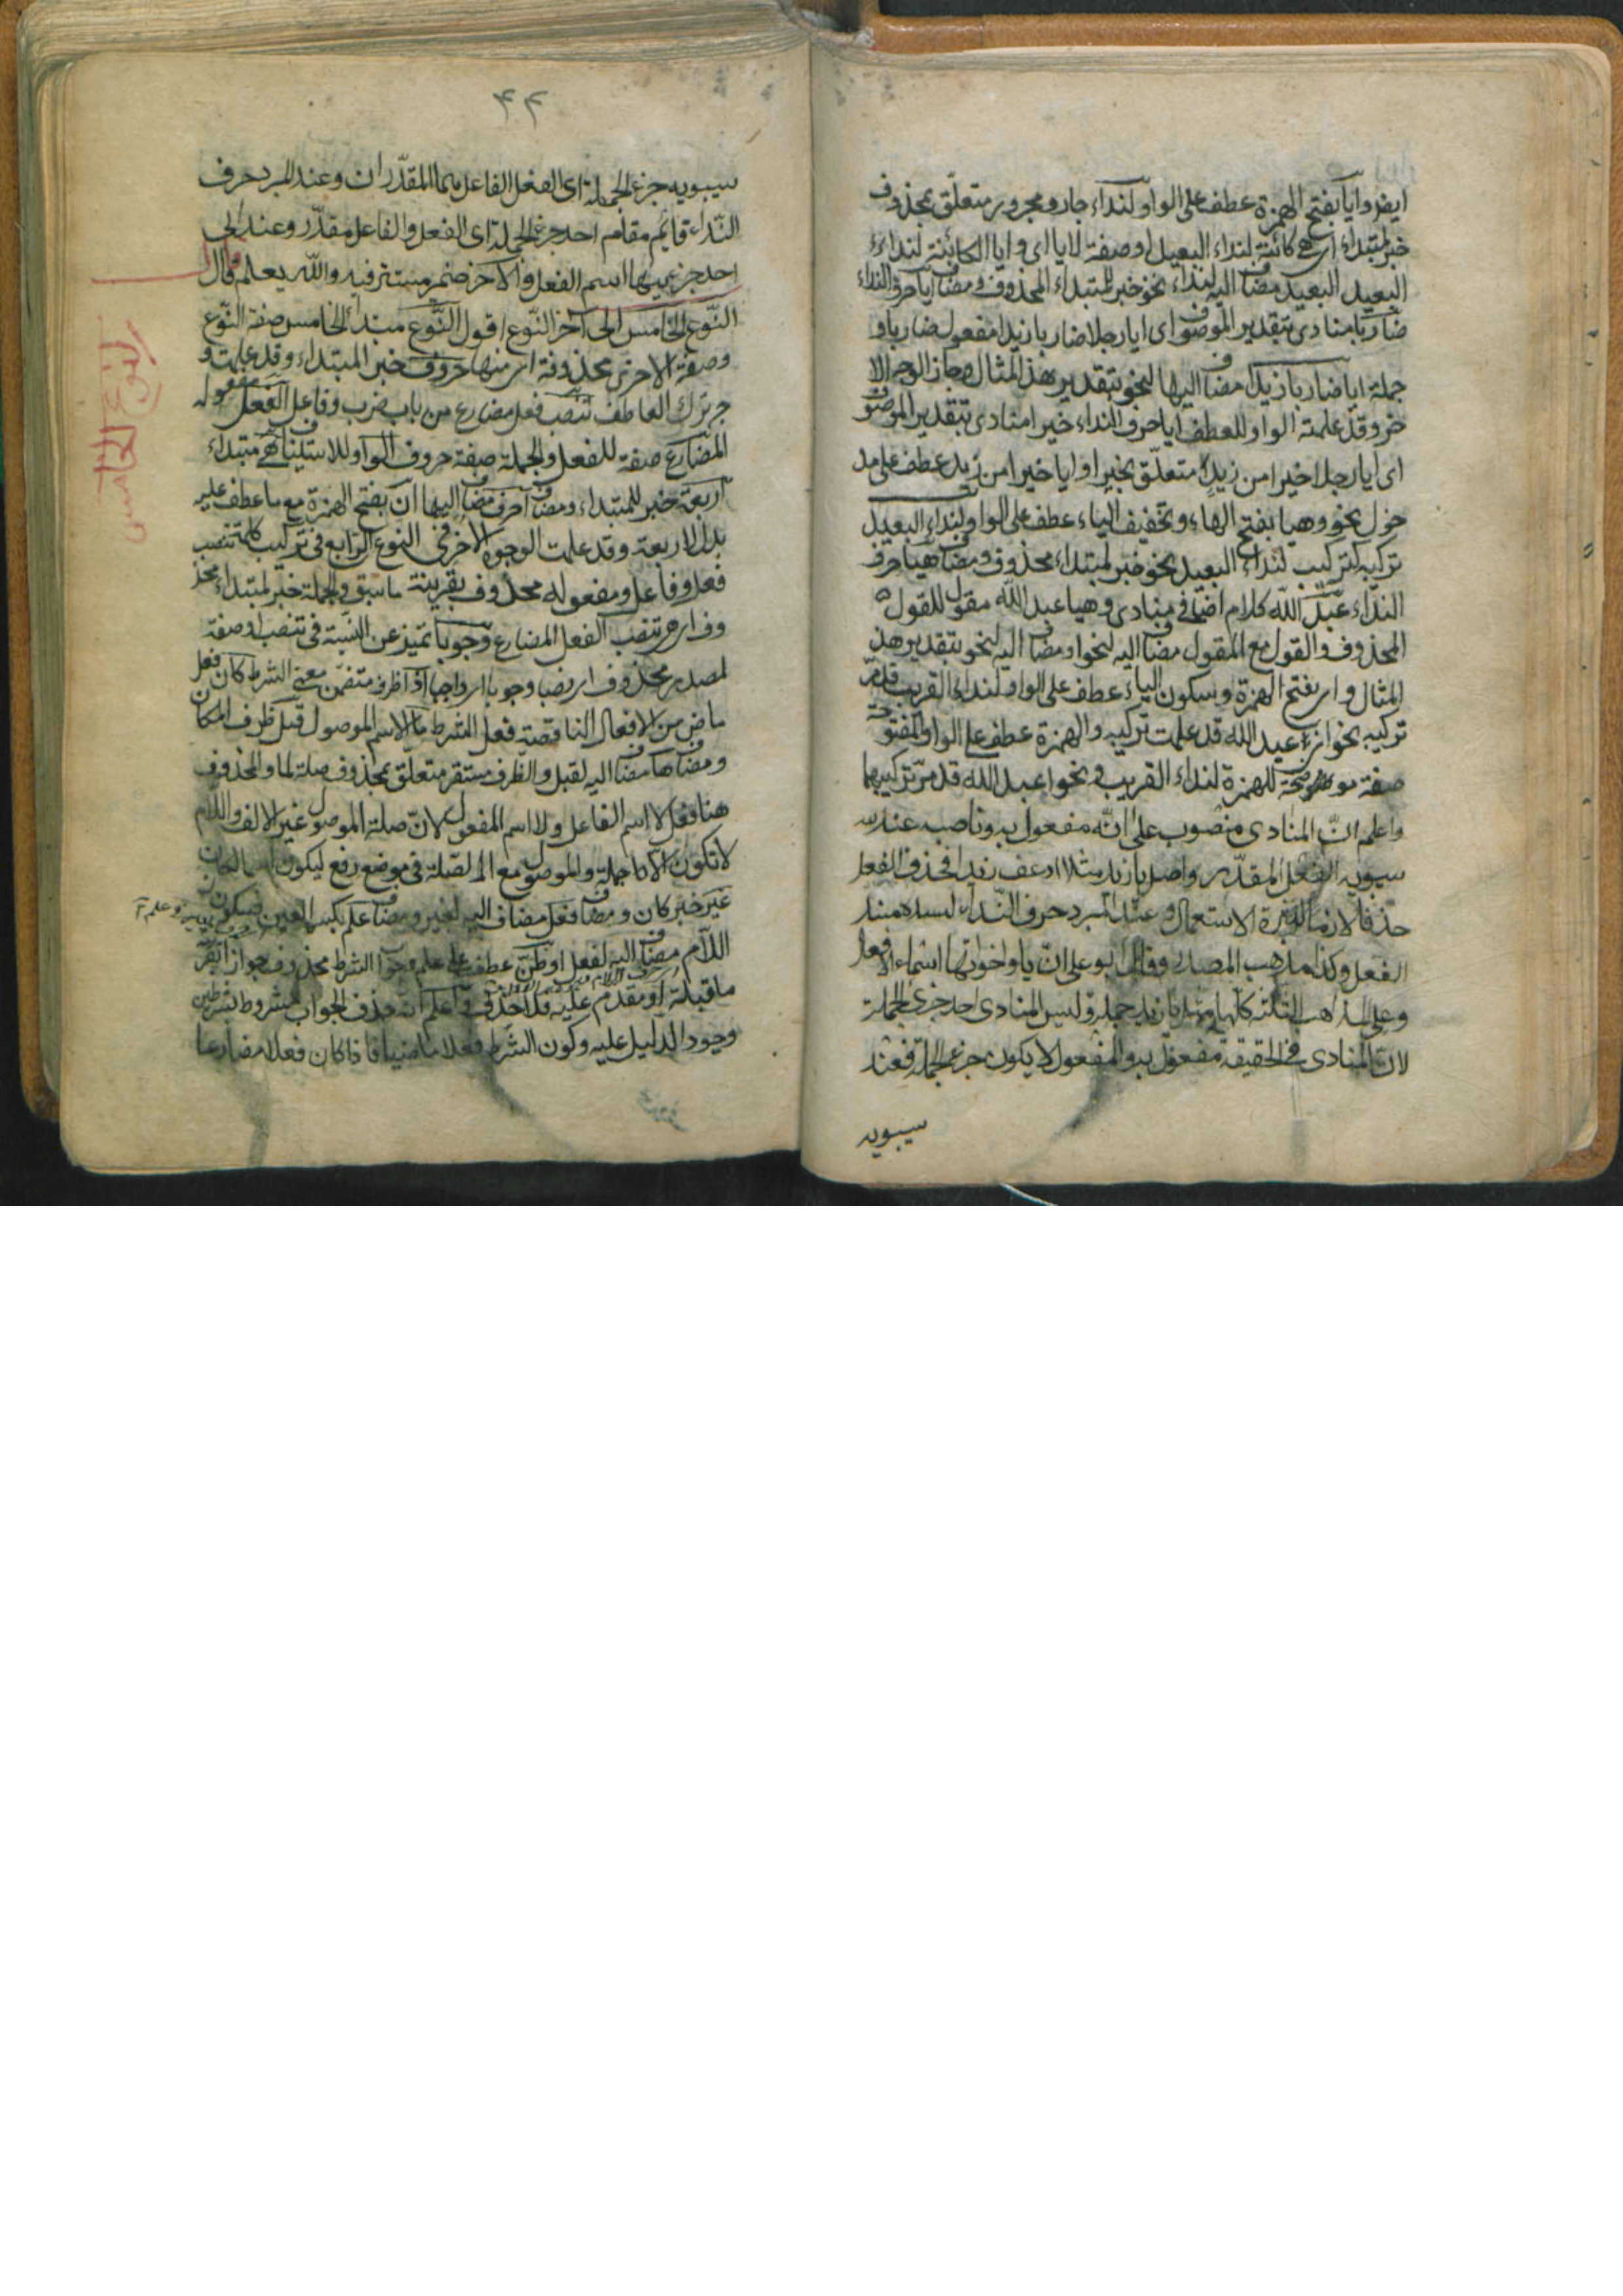 ايضا وايا بفتح الهمزة عطف على الواو لنداء جار ومجرور متعلّق بمحذوف
خبر لمبتداء اى هى كائنة لنداء البعيد او صفة لايا اى وايا الكائنة لنداء
البعيد البعيد مضاف اليه لنداء نحو خبر لمبتداء المحذوف ومضاف ايا حرف النداء
ضاربا منادى بتقدير الموصوف اى ايا رجلا ضاربا زيدا مفعول ضاربا و
جملة ايا ضاربا زيدا مضاف اليها لنحو بتقدير هذ المثال وجاز الوجه الا
خر وقد علمته الواو للعطف ايا حرف النداء خيرا منادى بتقدير الموصوف
اى ايا رجلا خيرا من زيد متعلّق بخيرا و ايا خيرا من زيد عطف على مد
خول نحو وهيا بفتح الهاء وتخفيف الياء عطف على الواو لنداء البعيد
تركيبه كتركيب لنداء البعيد نحو خبر لمبتداء محذوف ومضاف هيا حرف
النداء عبد الله كلام اضافى منادى وهيا عبد الله مقول للقول
المحذوف والقول مع المقول مضاف اليه لنحو او مضاف اليه لنحو بتقدير هذ
المثال واى بفتح الهمزة وسكون الياء عطف على الواو لنداء القريب قد مرّ
تركيبه نحو اى عبد الله قد علمت تركيبه والهمزة عطف على الواو المفتوحة
صفة موضحة للهمزة لنداء القريب ونحو اعبد الله قد مرّ تركيبهما
واعلم انّ المنادى منصوب على انّه مفعول به وناصبه عند
سيبويه الفعل المقدّر واصل يا زيد مثلا ادعو زيدا فحذف الفعل
حذفا لازما لكثرة الاستعمال وعند المبرد حرف النّداء لسده مسد
الفعل وكذا مذهب المصدر وقال ابو على انّ يا واخواتها اسماء الافعال
وعلى المذاهب الثلثة كلّها مثل يا زيد جملة وليس المنادى احد جزئ الجملة
لانّ المنادى فى الحقيقة مفعول به والمفعول لا يكون جزء الجملة فعند
سيبويه
٤٢
سيبويه جزء الجملة اى الفعل الفاعل هما المقدّران وعند المبرد حرف
النّداء قائم مقام احد جزئ الجملة اى الفعل والفاعل مقدّر وعند ابى
احد جزئيها اسم الفعل والآخر ضمير مستتر فيه والله يعلم قال
النّوع الخامس الى آخر النّوع اقول النّوع مبتداء الخامس صفة النّوع
وصفة الاخرى محذوفة اى منها حروف خبر المبتداء وقد علمت و
جه ترك العاطف تنصب فعل مضارع من باب ضرب وفاعل الفعل مفعوله
المضارع صفة للفعل والجملة صفة حروف الواو للاستيناف هى مبتداء
اربعة خبر للمبتداء ومضاف احرف مضاف اليها ان بفتح الهمزة مع ما عطف عليه
بدل الاربعة وقد علمت الوجوه الاخر فى النوع الرّابع فى تركيب كلمة تنصب
فعل وفاعل ومفعوله محذوف بقرينة ما سبق والجملة خبر لمبتداء محذ
وف اى هى تنصب الفعل المضارع وجوبا تميز عن النّسبة فى تنصب او صفة
لمصدر محذوف اى نصبا وجوبا اى واجبا اذا ظرف متضمّن معنى الشرط كان فعل
ماض من الافعال الناقصة فعل الشرط ما الاسم الموصول قبل ظرف المكان
ومضاف ها مضاف اليه لقبل والظرف مستقر متعلّق بمحذوف صلة لما والمحذوف
هنا فعل لا اسم الفاعل ولا اسم المفعول لانّ صلة الموصول غير الالف واللام
لا تكون الا جملة والموصول مع الصلة فى موضع رفع ليكون اسما لكان
غير خبر كان ومضاف فعل مضاف اليه لغير ومضاف علم بكسر العين فسكون
اللام مضاف اليه لفعل او ظنّ عطف على علم وجواب الشرط محذوف جوازا لتقرّر
ما قبله او مقدم عليه فلا حذف واعلم انّ حذف الجواب مشروط بشرطين
وجود الدليل عليه وكون الشرط فعلا ماضيا فاذا كان فعلا مضارعا
النوع الخامس